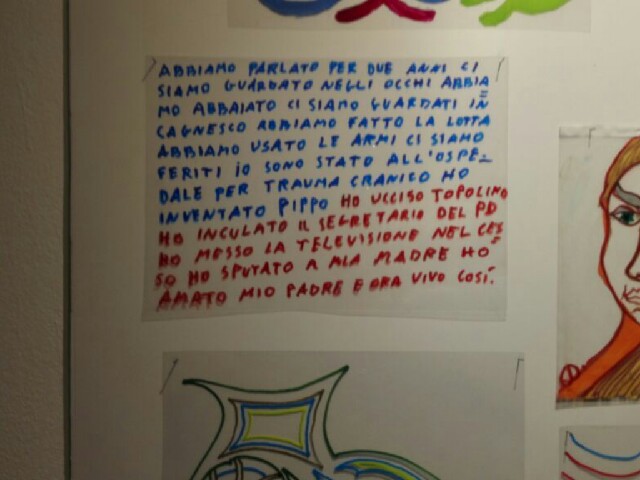 ABBIAMO PARLATO PER DUE ANNI CI
SIAMO GUARDATO NEGLI OCCHI ABBIA=
MO ABBAIATO CI SIAMO GUARDATI IN
CAGNESCO ABBIAMO FATTO LA LOTTA
ABBIAMO USATO LE ARMI CI SIAMO
FERITI IO SONO STATO ALL'OSPE=
DALE PER TRAUMA CRANICO HO
INVENTATO PIPPO HO UCCISO TOPOLINO
HO INCULATO IL SEGRETARIO DEL PD
HO MESSO LA TELEVISIONE NEL CES=
SO HO SPUTATO A MIA MADRE HO
AMATO MIO PADRE E ORA VIVO COSÌ.